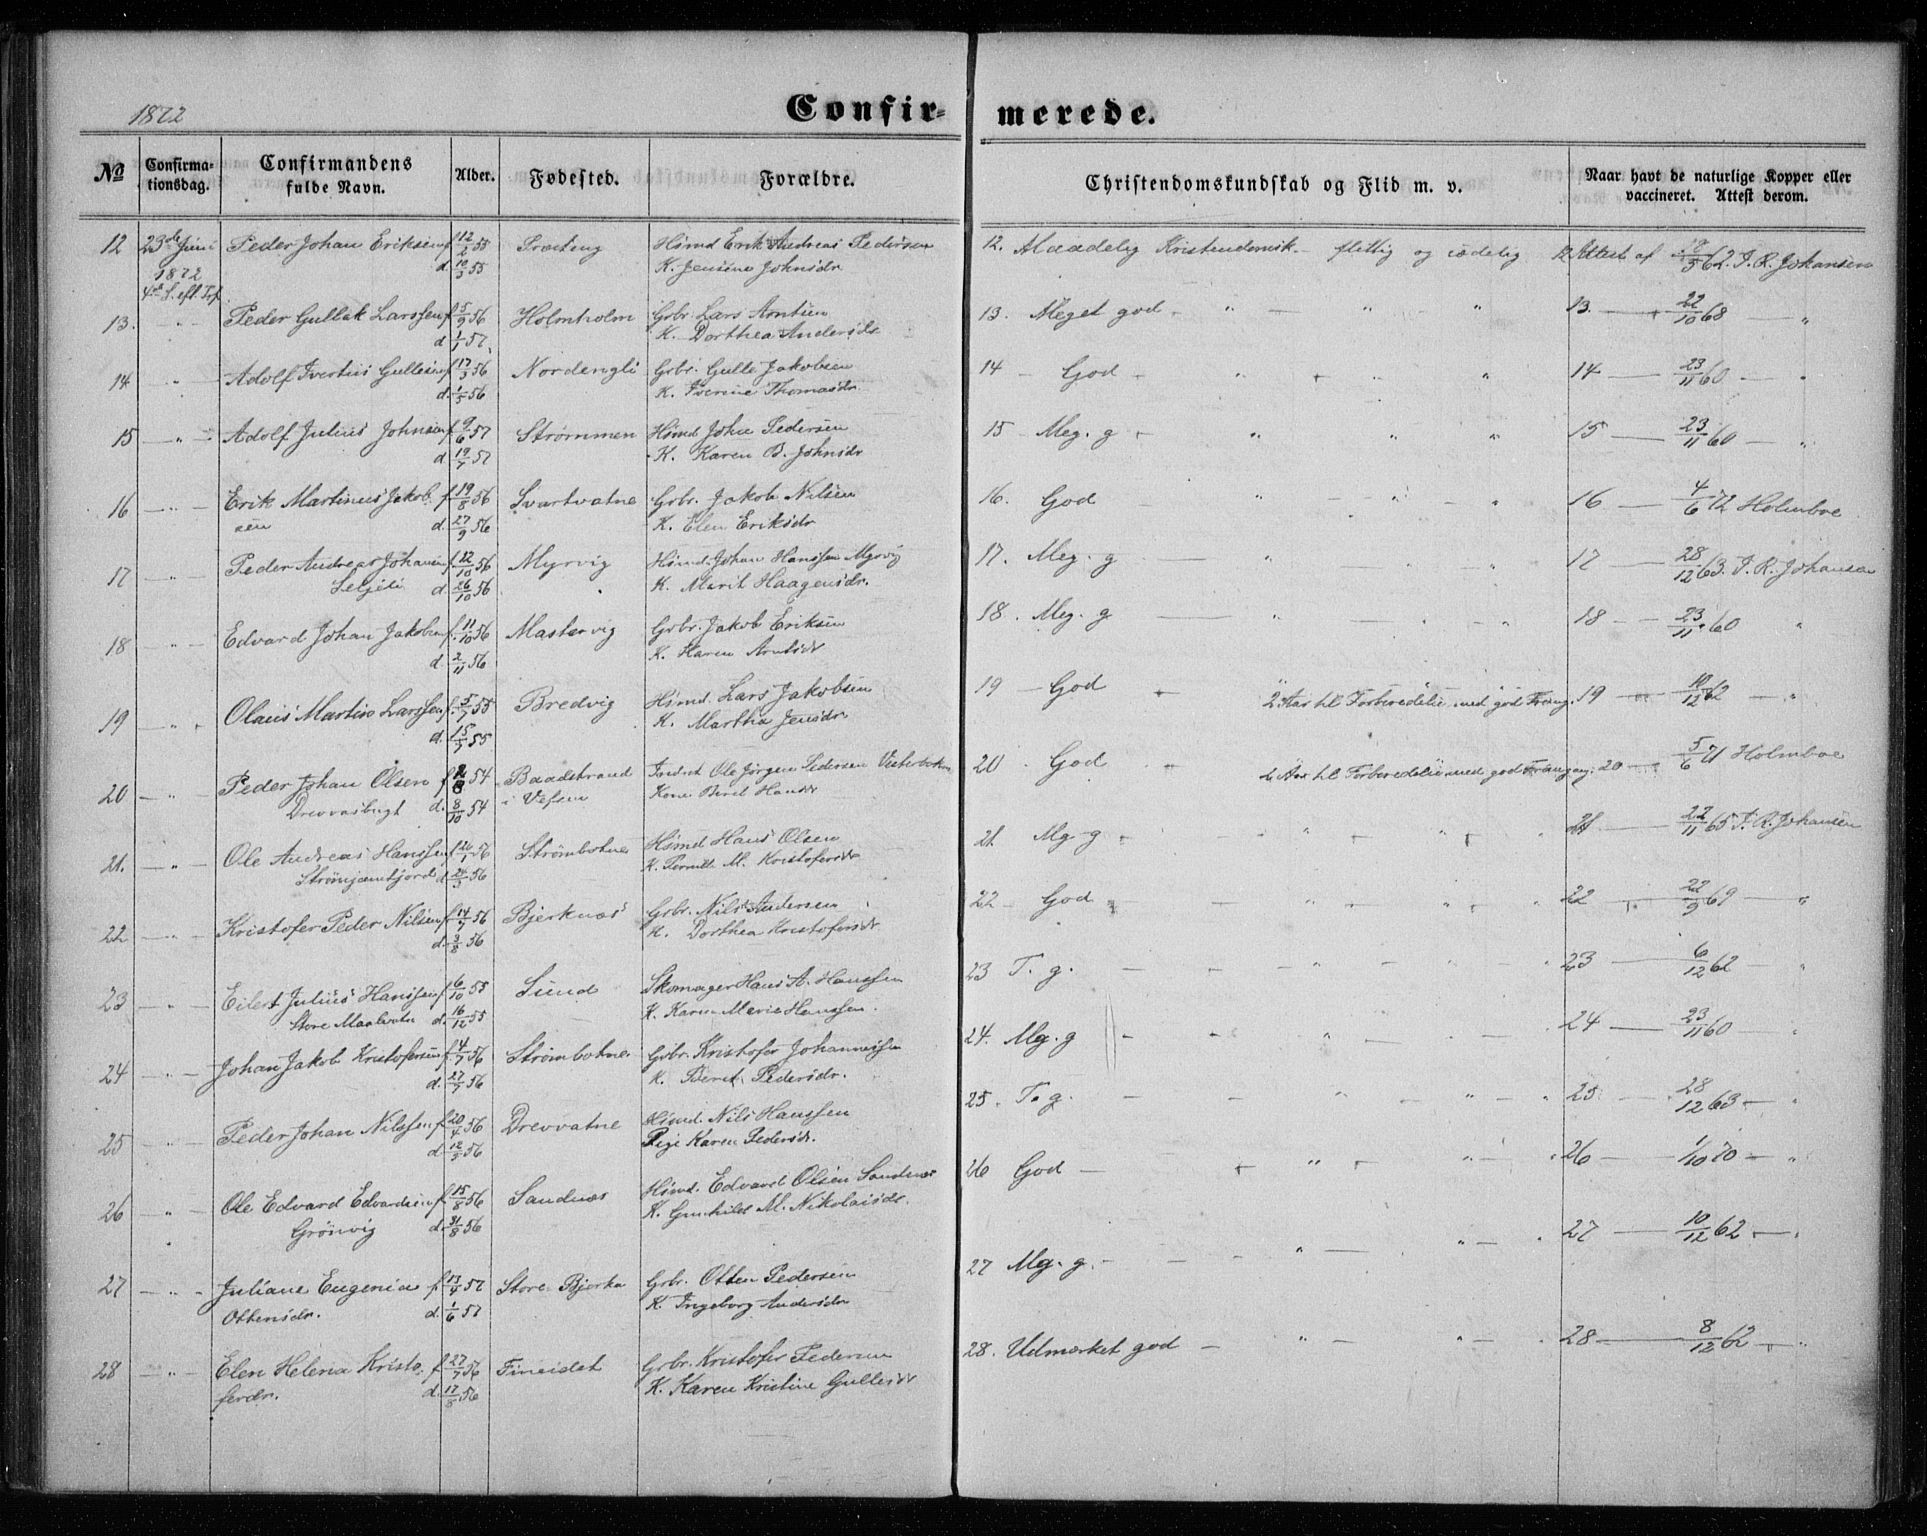 1872
Confirmerede.
No
Confirmationsdag.
Confirmandens fulde Navn.
Alder.
Fødested.
Forældre.
Christendomskundskab og Flid m. v.
Naar havt de naturlige Kopper eller vaccineret. Attest derom.
12 23de Juni 1872 4de S. eft. Tref. Peder Johan Eriksen f 12/2 55 Hsmd Erik Andreas Pedersen 12. Maadelig Kristendomsk. flittig og sædelig 12 Attest af /5 62. J. R. Johansen
d. 10/3 55 K. Jensine Johnsdr
13. " Peder Gullak Larssen f 5/9 56 Holmholm Gbr. Lars Arntsen 13. Meget god " " " 13. 22/10 68 "
d 1/1 57 K. Dorthea Andersdr
14 " Adolf Ivertius Gullesen f 17/3 56 Nordengli Gbr. Gulle Jakobsen 14 God " " " 14 23/11 60 "
d. 1/5 56 K. Iverine Thomasdr
15 " Adolf Julius Johnsen f. 9/6 57 Strømmen Hsmd John Pedersen 15 Meg. g " " " 15 23/11 60 "
d. 19/7 57 K. Karen B. Johnsdr
16 " Erik Martinus Jakob f 19/8 56 Svartvatne Gbr. Jakob Nilsen 16. God " " " 16 4/6 72 Holmboe
sen d. 27/9 56 K. Elen Eriksdr
17 " Peder Andreas Johansen f. 12/10 56 Myrvig Hsmd. Johan Hanssen Myrvig 17. Meg. g " " " 17 28/12 63. J. R. Johansen
Seljeli d 26/10 56 K. Marit Haagensdr.
18 " Edvard Johan Jakobsen f. 11/10 56 Mastervig Gbr. Jakob Eriksen 18. Meg. g " " " 18 23/11 60 "
d. 2/11 56 K. Karen Arntsdr
19 " Olaus Martin Larssen f. 5/7 55 Bredvig Hsmd. Lars Jakobsen 19 God 2 Aar til Forberedelse med god Frang. 19 10/12 62 "
d. 15/7 55 K. Martha Jensdr
20 " Peder Johan Olsen f 2/8 54 Baadstrand Indst Ole Jörgen Pedersen 20 God 2 Aar til Forberedelse med god Frangang. 20 5/6 71 Holmboe
Drevvasbugt d. 8/10 54 i Vefsen Kone Beret Hansdr
21. " Ole Andreas Hanssen f 26/1 56 Strömbotne Hsmd Hans Olsen 21. Mg. g " " " 21 22/11 65 J. R. Johansen
d 24/3 56 K. Pernille M. Kristofersdr
22 " Kristofer Peder Nilsen f. 14/7 56 Bjerknæs Gbr. Nils Andersen 22 God " " 22 22/9 69 "
d. 3/8 56 K. Dorthea Kristofersdr
23 " Eilert Julius Hanssen f 6/10 55 Sund Skomager Hans A. Hanssen 23 T. g. " " 23 6/12 62 "
Store Maalvatn d. 16/12 55 K. Karen Marie Hanssen.
24 " Johan Jakob Kristofersen f. 4/7 56 Strömbotne Gbr. Kristofer Johannessen 24. Mg. g " " 24 23/11 60 "
d. 27/7 56 K. Beret Pedersdr.
25 " Peder Johan Nilssen f 20/4 56 Drevvatne Hsmd. Nils Hanssen 25. T. g. " " 25 28/12 63 "
d. 12/5 56 Pige Karen Pedersdr.
26 " Ole Edvard Edvardsen f. 15/8 56 Sandnæs Hsmd. Edvard Olsen Sandnæs 26 God " " 26 1/10 70 "
Grönvig d. 31/8 56 K. Gunhild M. Nikolaisdr.
27 " Juliane Eugenia f. 13/4 57 Store Bjerka Gbr. Otten Pedersen 27 Mg. g. " " 27 10/12 62 "
Ottensdr. d. 1/6 57 K. Ingeborg Andersdr
28 " Elen Helena Kristo f 27/7 56 Fineidet Gbr. Kristofer Pedersen 28. Udmærket god " " 28 8/12 62 "
ferdr. d. 17/8 56 K. Karen Kristine Gullesdr